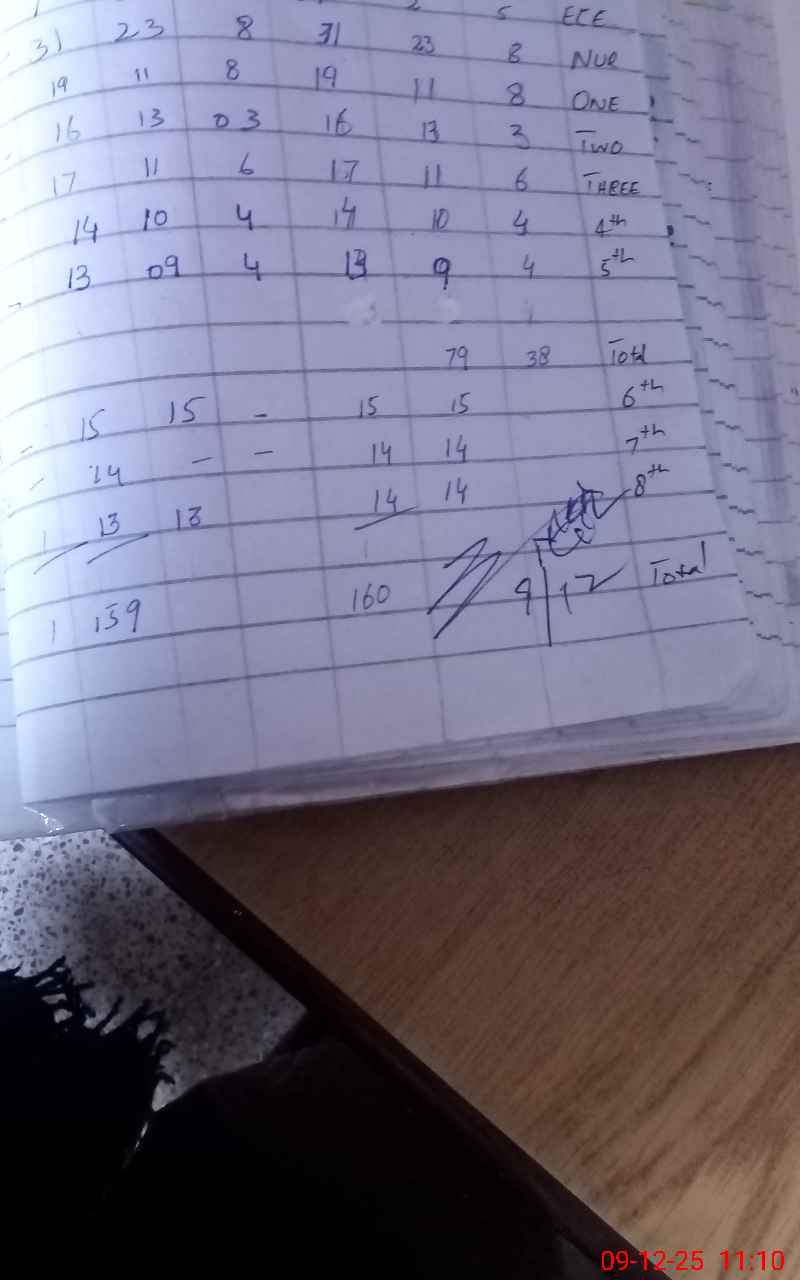 2 5 ECE
31 23 8 31 23 8 NUR
19 11 8 19 11 8 ONE
16 13 03 16 13 3 TWO
17 11 6 17 11 6 THREE
14 10 4 14 10 4 4th
13 09 4 13 9 4 5th
79 38 Total
- 15 15 - 15 15 6th
- 14 - - 14 14 7th
1 13 13 14 14 8th
1 159 160 9/12 Total
09-12-25 11:10